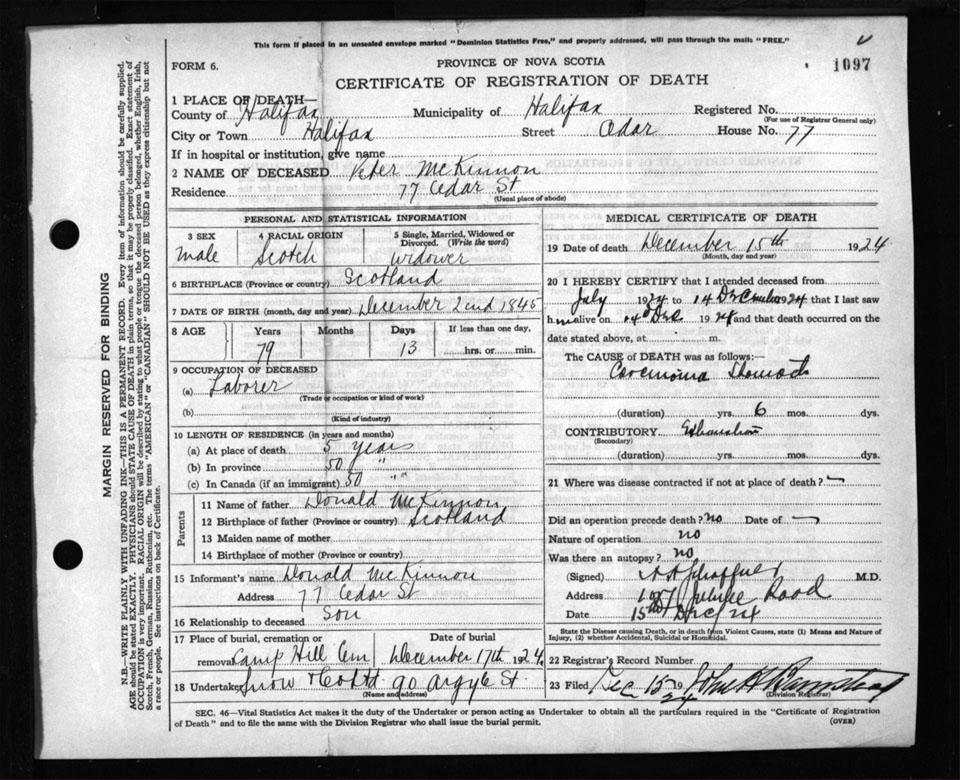 This form if placed in an unsealed envelope marked "Dominion Statistics Free," and properly addressed, will pass through the mails "FREE."
FORM 6.
PROVINCE OF NOVA SCOTIA
1097
CERTIFICATE OF REGISTRATION OF DEATH
1 PLACE OF DEATH—
County of Halifax Municipality of Halifax Registered No.
(For use of Registrar General only)
City or Town Halifax Street Cedar House No. 77
If in hospital or institution, give name
2 NAME OF DECEASED Peter McKinnon
Residence 77 Cedar St
(Usual place of abode)
PERSONAL AND STATISTICAL INFORMATION
3 SEX 4 RACIAL ORIGIN 5 Single, Married, Widowed or Divorced. (Write the word)
Male Scotch Widower
6 BIRTHPLACE (Province or country) Scotland
7 DATE OF BIRTH (month, day and year) December 2nd 1845
8 AGE Years Months Days If less than one day,
79 13 hrs. or min.
9 OCCUPATION OF DECEASED
(a) Laborer
(Trade or occupation or kind of work)
(b)
(Kind of industry)
10 LENGTH OF RESIDENCE (in years and months)
(a) At place of death 5 years
(b) In province 50 "
(c) In Canada (if an immigrant) 50 "
Parents
11 Name of father Donald McKinnon
12 Birthplace of father (Province or country) Scotland
13 Maiden name of mother
14 Birthplace of mother (Province or country)
15 Informant's name Donald McKinnon
Address 77 Cedar St
16 Relationship to deceased Son
17 Place of burial, cremation or removal Camp Hill Cem Date of burial December 17th 1924
18 Undertaker Snow & Co Ltd 90 Argyle St.
(Name and address)
MEDICAL CERTIFICATE OF DEATH
19 Date of death December 15th 1924
(Month, day and year)
20 I HEREBY CERTIFY that I attended deceased from
July 1924 to 14 December 1924 that I last saw
him alive on 14 Dec 1924 and that death occurred on the
date stated above, at m.
The CAUSE OF DEATH was as follows:
Carcinoma Stomach
(duration) yrs. 6 mos. dys.
CONTRIBUTORY Exhaustion
(Secondary)
(duration) yrs. mos. dys.
21 Where was disease contracted if not at place of death? —
Did an operation precede death? no Date of —
Nature of operation no
Was there an autopsy? no
(Signed) M.D.
Address Jubilee Road
Date 15th Dec 24
State the Disease causing Death, or in death from Violent Causes, state (1) Means and Nature of
Injury, (2) whether Accidental, Suicidal or Homicidal.
22 Registrar's Record Number
23 Filed Dec 15 1924
(Division Registrar)
SEC. 46—Vital Statistics Act makes it the duty of the Undertaker or person acting as Undertaker to obtain all the particulars required in the "Certificate of Registration
of Death" and to file the same with the Division Registrar who shall issue the burial permit.
(OVER)
MARGIN RESERVED FOR BINDING
N.B.—WRITE PLAINLY WITH UNFADING INK—THIS IS A PERMANENT RECORD. Every item of information should be carefully supplied.
AGE should be stated EXACTLY. PHYSICIANS should STATE CAUSE OF DEATH in plain terms, so that it may be properly classified. Exact statement of
OCCUPATION is very important. RACIAL ORIGIN will be described by stating to what people or tongue the deceased person belonged, whether English, Irish,
Scotch, French, German, Russian, Ruthenian, etc. The terms "AMERICAN" or "CANADIAN" SHOULD NOT BE USED as they express citizenship but not
a race or people. See instructions on back of Certificate.